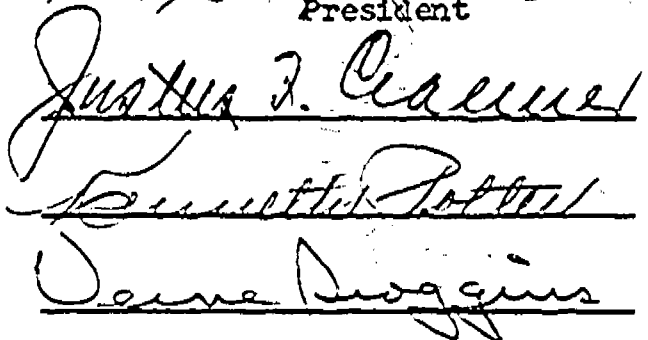 President
Justus F. Craemer
Kenneth Potter
Verne Scoggins